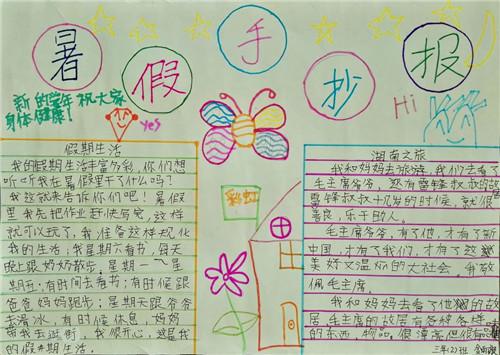 暑假手抄报
新的学年祝大家
身体健康！
yes
Hi
彩虹
假期生活
我的假期生活丰富多彩，你们想
听听我在暑假里干了什么吗？
我这就来告诉你们吧！暑假
里我先把作业赶快写完，这样
就可以玩了，我准备这样规化
我的生活：我星期六看书，每天
晚上跟奶奶散步。星期一~星
期五，有时间去看书；有时候跟
爸爸妈妈跑步；星期天跟爷爷
去滑冰，有时候休息，妈妈
带我去逛街，我很开心，这是我
的假期生活。
湖南之旅
我和妈妈去旅游，我们去看了
毛主席爷爷，还有雷锋叔叔的
雷锋叔叔十几岁的时候，就很
善良，乐于助人。
毛主席爷爷，有了他，才有了新
中国，才有了我们，才有了这
美好又温馨的大社会。我敬
佩毛主席。
我和妈妈去看了他的故
居，毛主席的故居有各种各样
的东西，物品，很漂亮，但很
三年(2)班